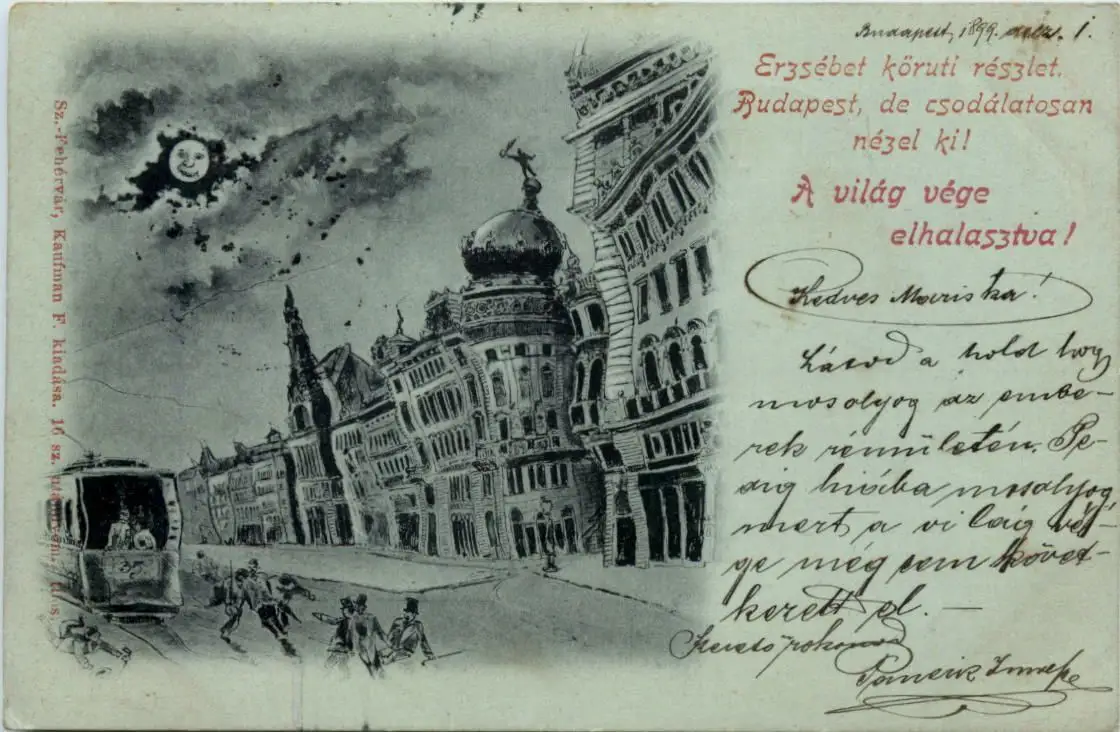 Budapest, 1899. 1.
Erzsébet köruti részlet.
Budapest, de csodálatosan
nézel ki!
A világ vége
elhalasztva!
Kedves Mariska!
Látod a hold hogy
mosolyog az embe-
rek rémületén. Pe-
dig hiába mosolyog
mert a világ vé-
ge még sem követ-
kezett el. —
Szerető rokonod
Sz.-Fehérvár, Kaufman F. kiadása. 16 sz.
35